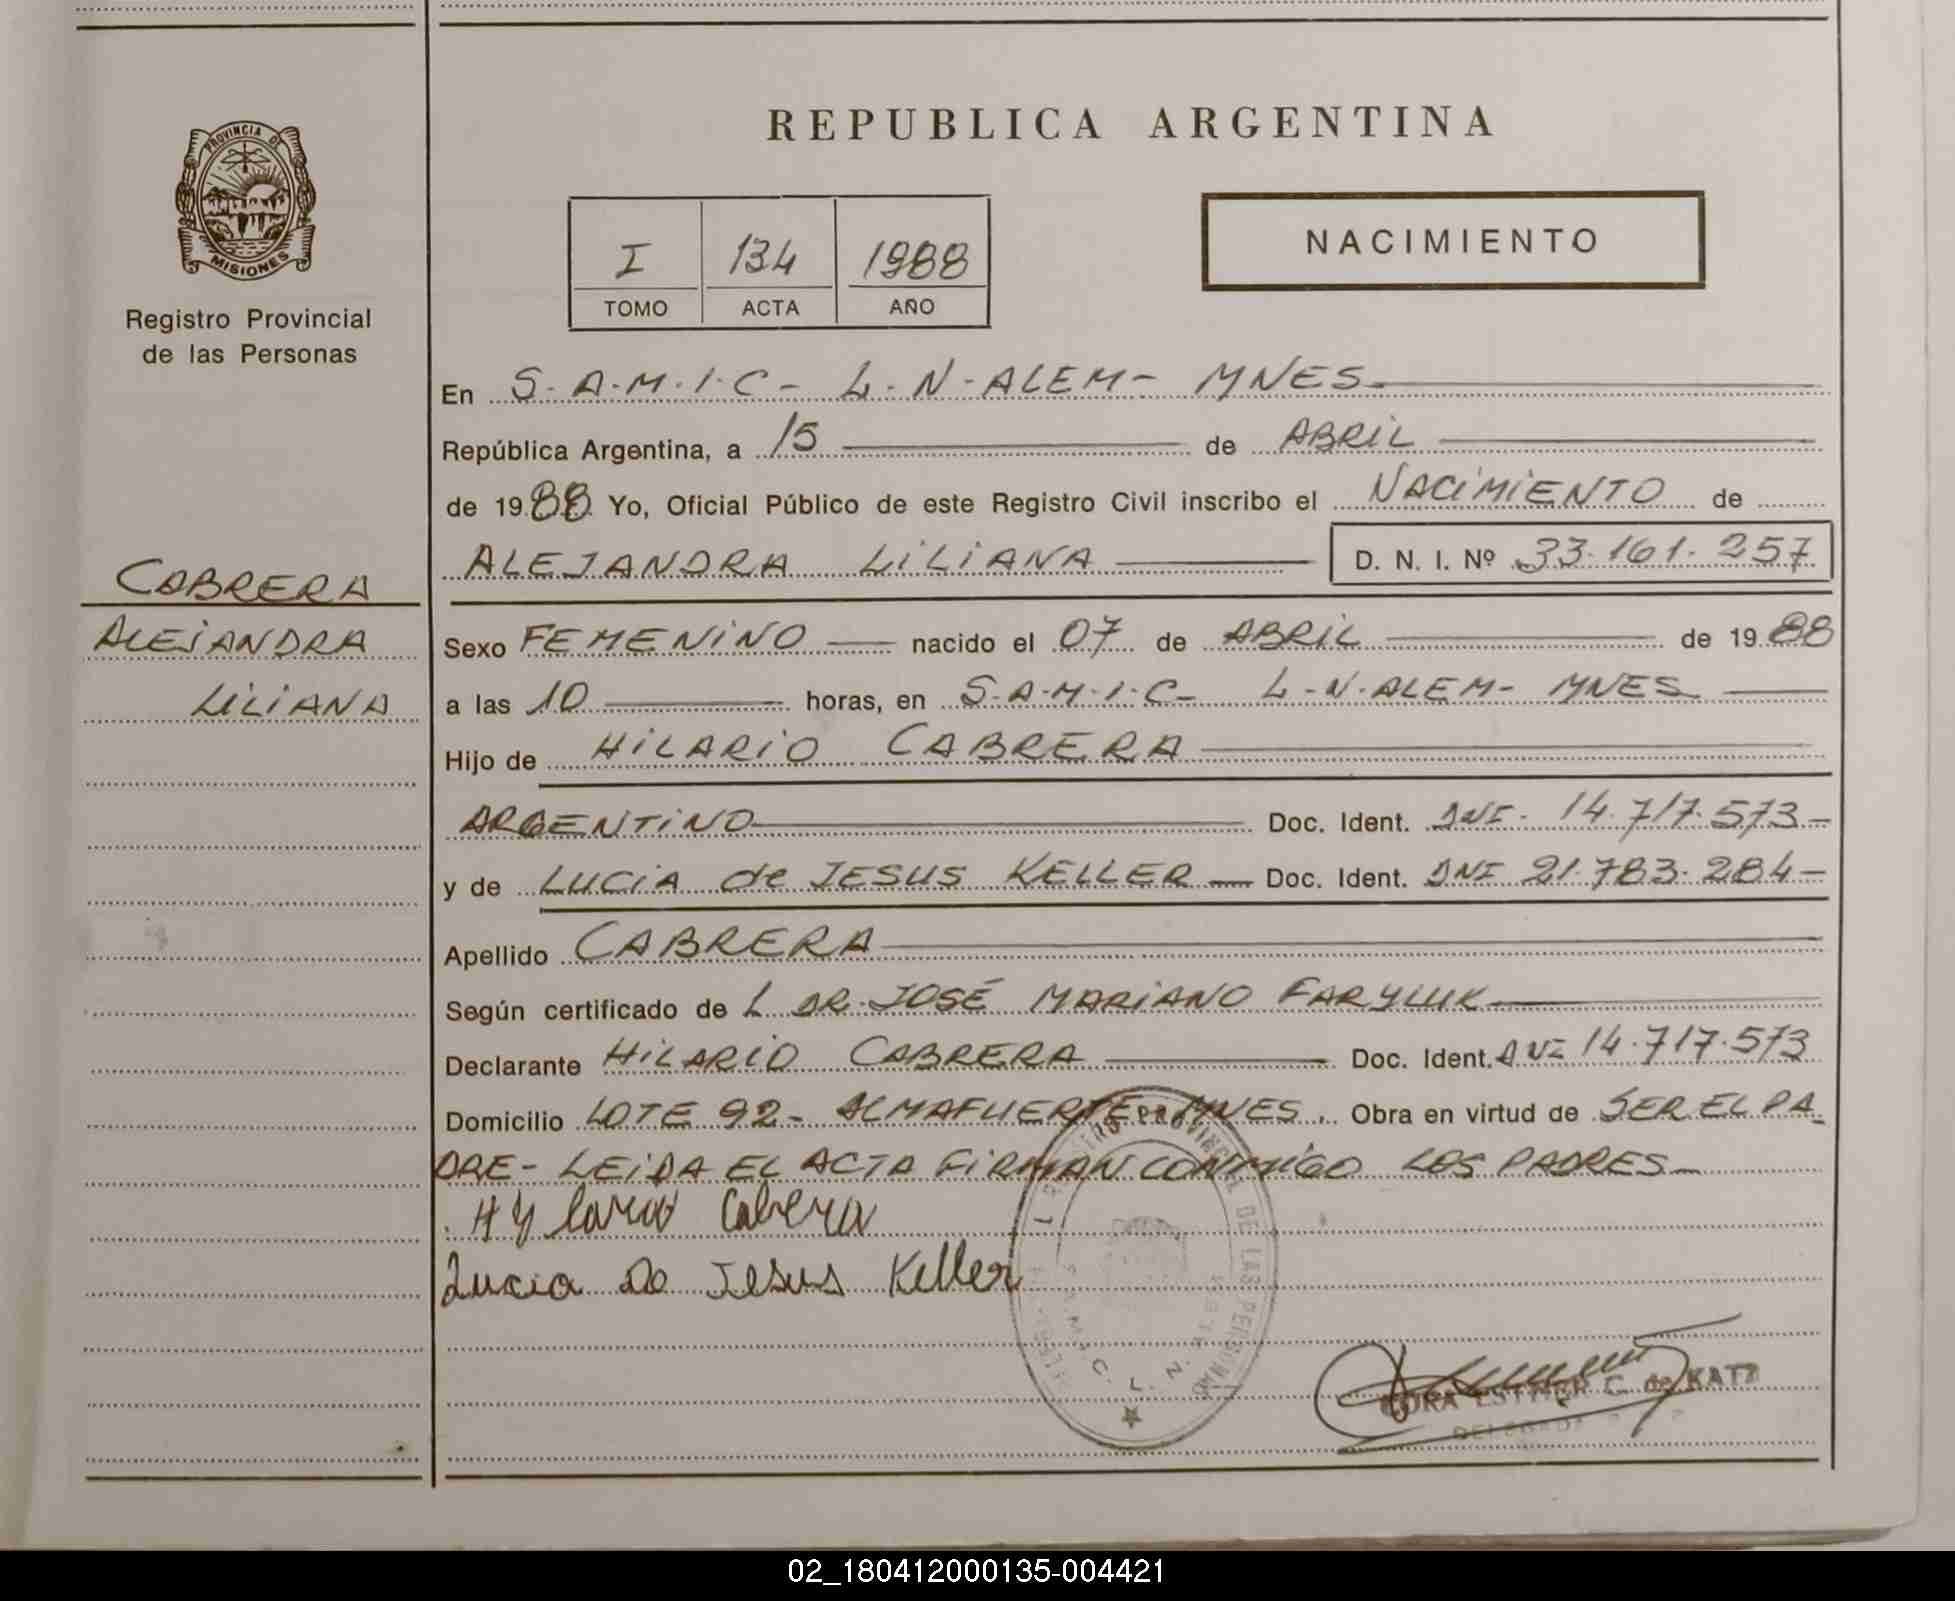 REPUBLICA ARGENTINA
PROVINCIA DE
MISIONES
Registro Provincial
de las Personas
I 134 1988
TOMO ACTA AÑO
NACIMIENTO
CABRERA
ALEJANDRA
LILIANA
En S.A.M.I.C- L.N.ALEM- MNES.
República Argentina, a 15 de ABRIL
de 1988 Yo, Oficial Público de este Registro Civil inscribo el NACIMIENTO de
ALEJANDRA LILIANA D. N. I. Nº 33.161.257
Sexo FEMENINO nacido el 07 de ABRIL de 1988
a las 10 horas, en S.A.M.I.C- L.N.ALEM- MNES
Hijo de HILARIO CABRERA
ARGENTINO Doc. Ident. DNI. 14.717.573-
y de LUCIA de JESUS KELLER Doc. Ident. DNI 21.783.284-
Apellido CABRERA
Según certificado de L DR. JOSÉ MARIANO FARYLUK
Declarante HILARIO CABRERA Doc. Ident. DNI 14.717.573
Domicilio LOTE 92- ALMAFUERTE MNES. Obra en virtud de SER EL PA
DRE- LEIDA EL ACTA FIRMAN CONMIGO LOS PADRES-
Hylario Cabrera
Lucia De Jesus Keller
REGISTRO PROVINCIAL DE LAS PERSONAS
S.A.M.I.C. L. N.
ESTHER C. de KATZ
DELEGADA
02_180412000135-004421